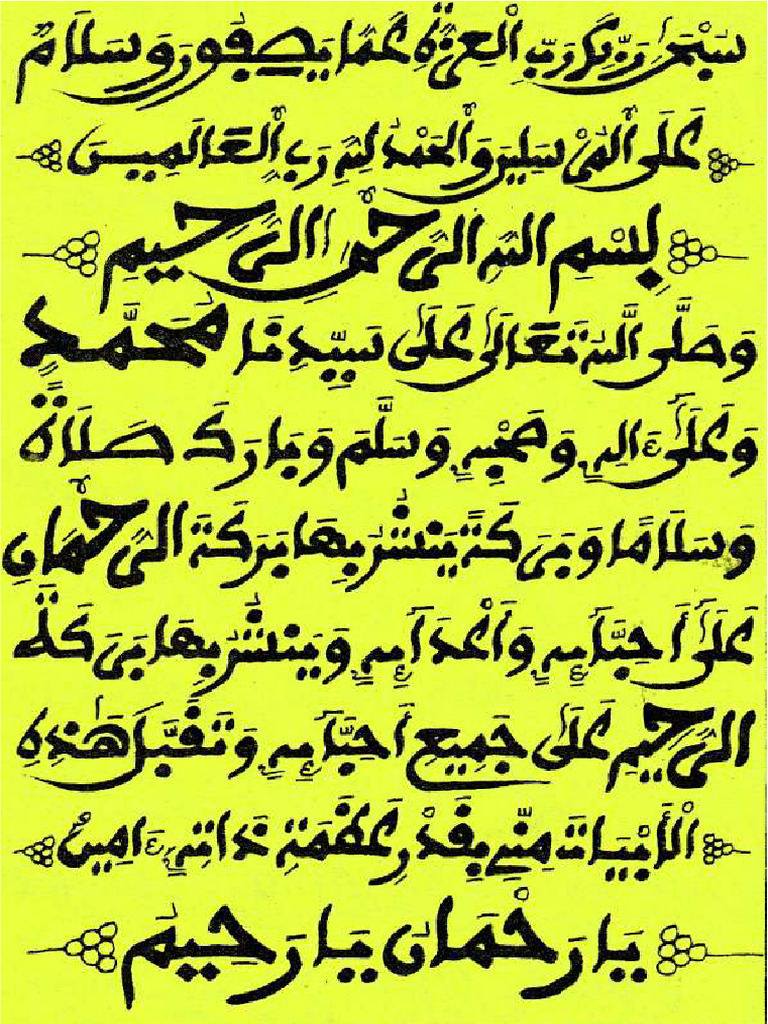 سُبْحَٰنَ رَبِّكَ رَبِّ الْعِزَّةِ عَمَّا يَصِفُونَ وَسَلَامٌ
عَلَى الْمُرْسَلِينَ وَالْحَمْدُ لِلَّهِ رَبِّ الْعَالَمِينَ
بِسْمِ اللَّهِ الرَّحْمَٰنِ الرَّحِيمِ
وَصَلَّى اللَّهُ تَعَالَىٰ عَلَىٰ سَيِّدِنَا مُحَمَّدٍ
وَعَلَىٰ ءَالِهِ وَصَحْبِهِ وَسَلَّمَ وَبَارَكَ صَلَاةً
وَسَلَامًا وَبَرَكَةً يَنْشُرُ بِهَا بَرَكَةَ الرَّحْمَانِ
عَلَىٰ أَحِبَّآئِهِ وَأَعْدَآئِهِ وَيَنْشُرُ بِهَا بَرَكَةَ
الرَّحِيمِ عَلَىٰ جَمِيعِ أَحِبَّآئِهِ وَتَقَبَّلَ هَٰذِهِ
الْأَبْيَاتَ مِنِّي بِقَدْرِ عَظَمَةِ ذَاتِهِ ءَامِينَ
يَا رَحْمَانُ يَا رَحِيمُ